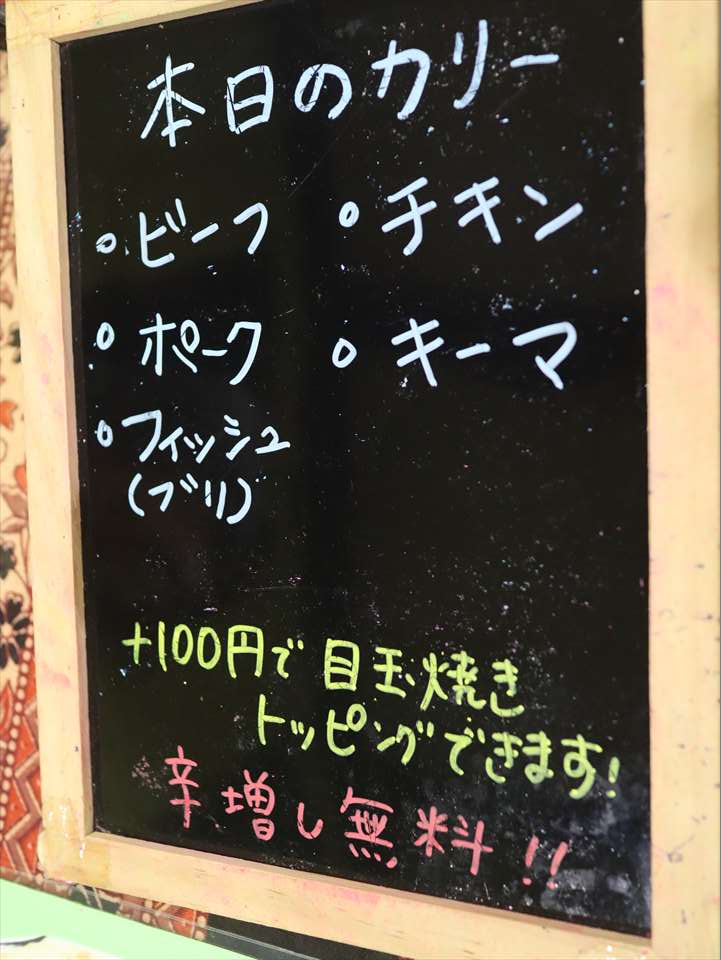 本日のカリー
○ビーフ ○チキン
○ポーク ○キーマ
○フィッシュ
(ブリ)
+100円で目玉焼き
トッピングできます!
辛増し無料!!